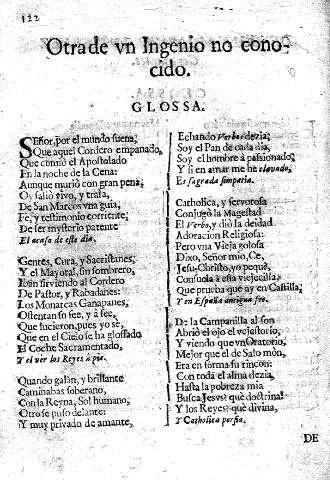 122
Otra de vn Ingenio no cono-
cido.
GLOSSA.
SEñor, por el mundo suena,
Que aquel Cordero empanado,
Que comiò el Apostolado
En la noche de la Cena:
Aunque muriò con gran pena,
Oy saliò vivo, y traza,
De San Marcos vna guia,
Fe, y testimonio corriente,
De ser mysterio patente
El acaso de este dia.
Gentes, Cura, y Sacristanes,
Y el Mayoral, sin sombrero,
Iban sirviendo al Cordero
De Pastor, y Rabadanes:
Los Monarcas Ganapanes,
Ostentan so fee, y à fee,
Que hicieron, pues yo se,
Que en el Cielo se ha glossado
El Coche Sacramentado,
Y el ver los Reyes à pie.
Quando galàn, y brillante
Caminabas soberano,
Con la Reyna, Sol humano,
Otro se puso delante:
Y muy privado de amante,
Echando Verbos dezia;
Soy el Pan de cada dia,
Soy el hombre apassionado,
Y si en amar me hè clavado,
Es sagrada simpatia.
Catholica, y fervorosa
Conjugò la Magestad
El Verbo, y diò la deidad
Adoracion Religiosa:
Pero vna Vieja golosa
Dixo, Señor mio, Ce,
Jesu-Christo, yo pequè,
Consuela à esta viejecilla;
Que prueba que ay en Castilla,
Y en España antigua fee.
De la Campanilla al son
Abriò el ojo el vejestorio,
Y viendo que vn Oratorio,
Mejor que el de Salomòn,
Era en forma su rincon:
Con toda el alma dezia,
Hasta la pobreza mia
Busca Jesus? què doctrina!
Y los Reyes? què divina,
Y Catholica porfia.
DE